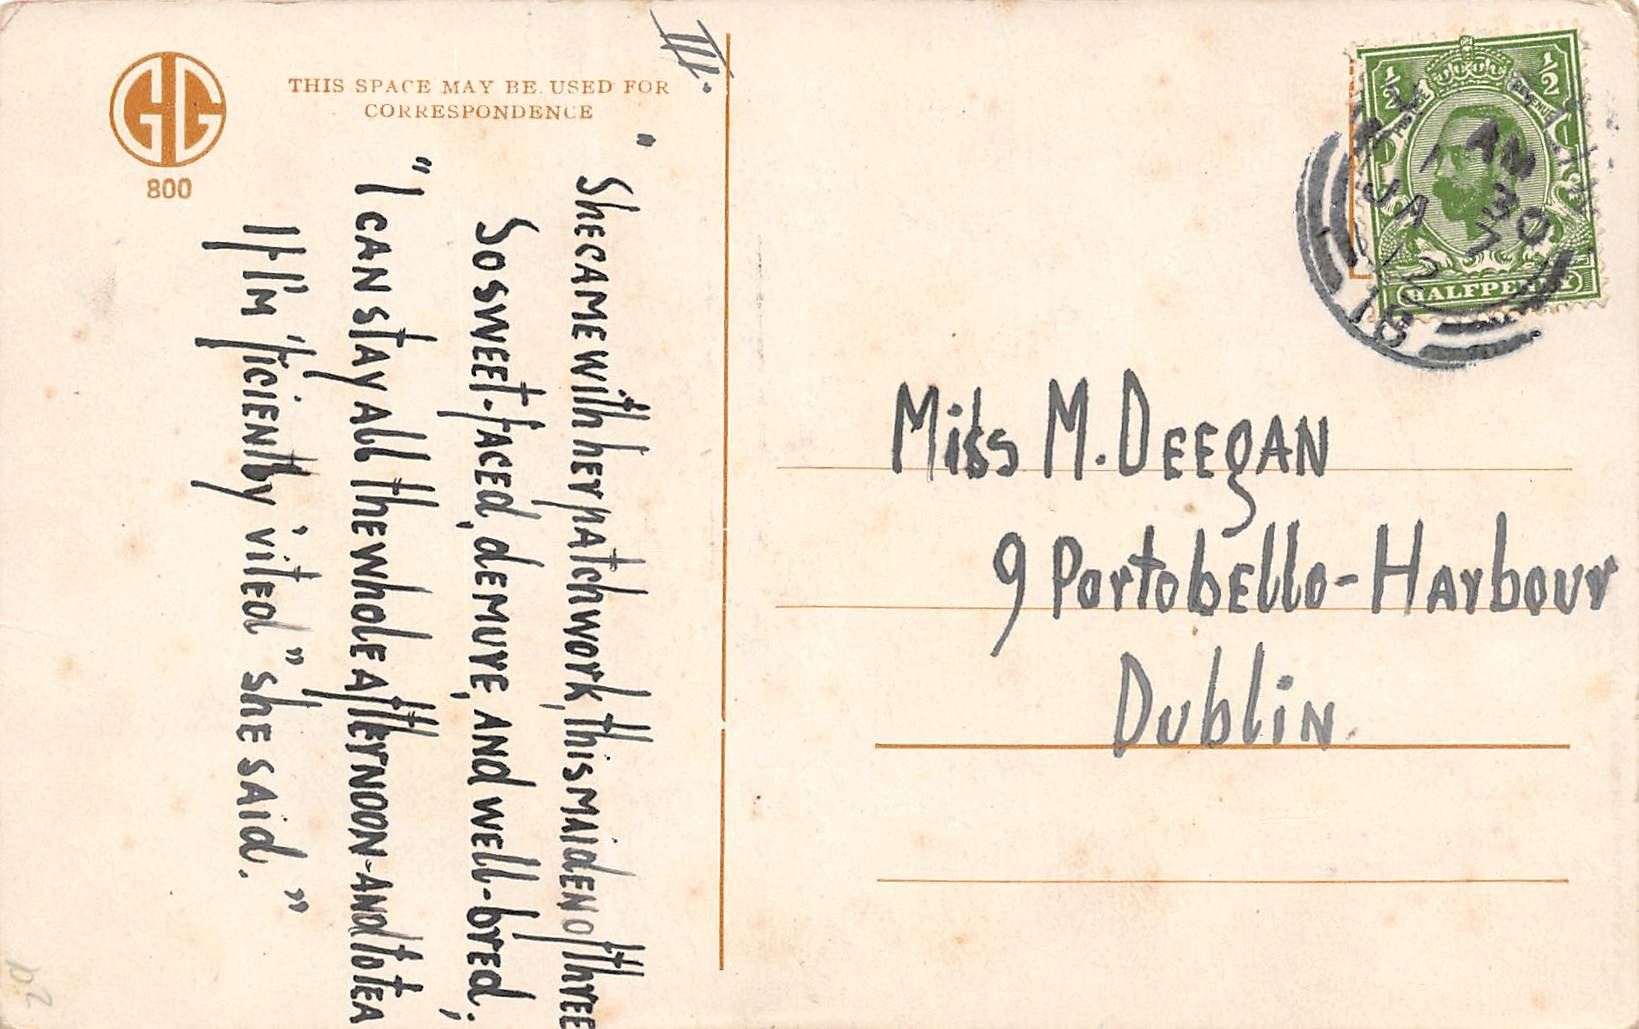 GG
800
THIS SPACE MAY BE USED FOR
CORRESPONDENCE
III.
"She came with her patchwork, this maiden of three
So sweet-faced, demure, and well-bred;
"I can stay all the whole afternoon-and to tea
If I'm 'ficiently 'vited" she said."
½ ½
POSTAGE REVENUE
HALFPENNY
AM
7 30
JA 7
12
18
Miss M. Deegan
9 Portobello-Harbour
Dublin.